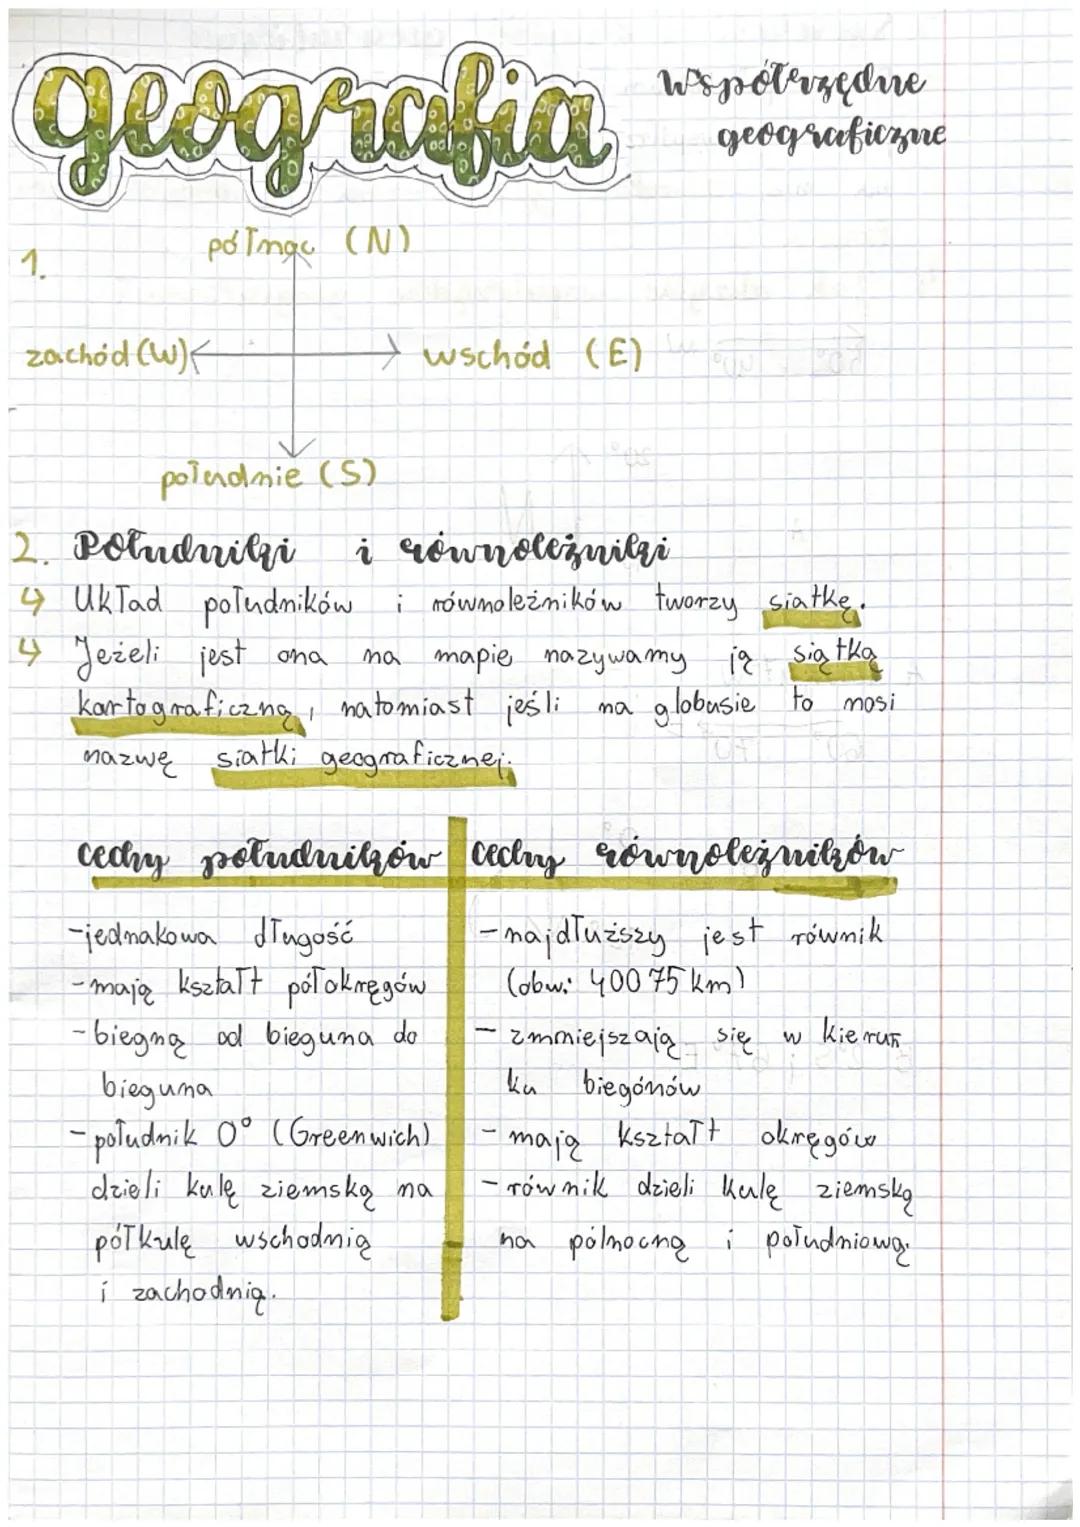 geografia
Współrzędne
geograficzne
1.
północ (N)
zachód (W)
wschód (E)
południe (S)
2. Południki i równoleżniki
↳ Układ południków i równoleżników tworzy siatkę.
↳ Jeżeli jest ona na mapie nazywamy ją siątką
kartograficzną, natomiast jeśli na globusie to nosi
nazwę siatki geograficznej.
cechy południków
-jednakowa długość
-mają kształt półokręgów
-biegną od bieguna do
bieguna
-południk 0° (Greenwich)
dzieli kulę ziemską na
półkulę wschodnią
i zachodnią.
cechy równoleżników
-najdłuższy jest równik
(obw: 40075 km)
- zmniejszają się w kierun
ku biegónów
- mają kształt okręgów
-równik dzieli kulę ziemską
na pólnocną i południową.